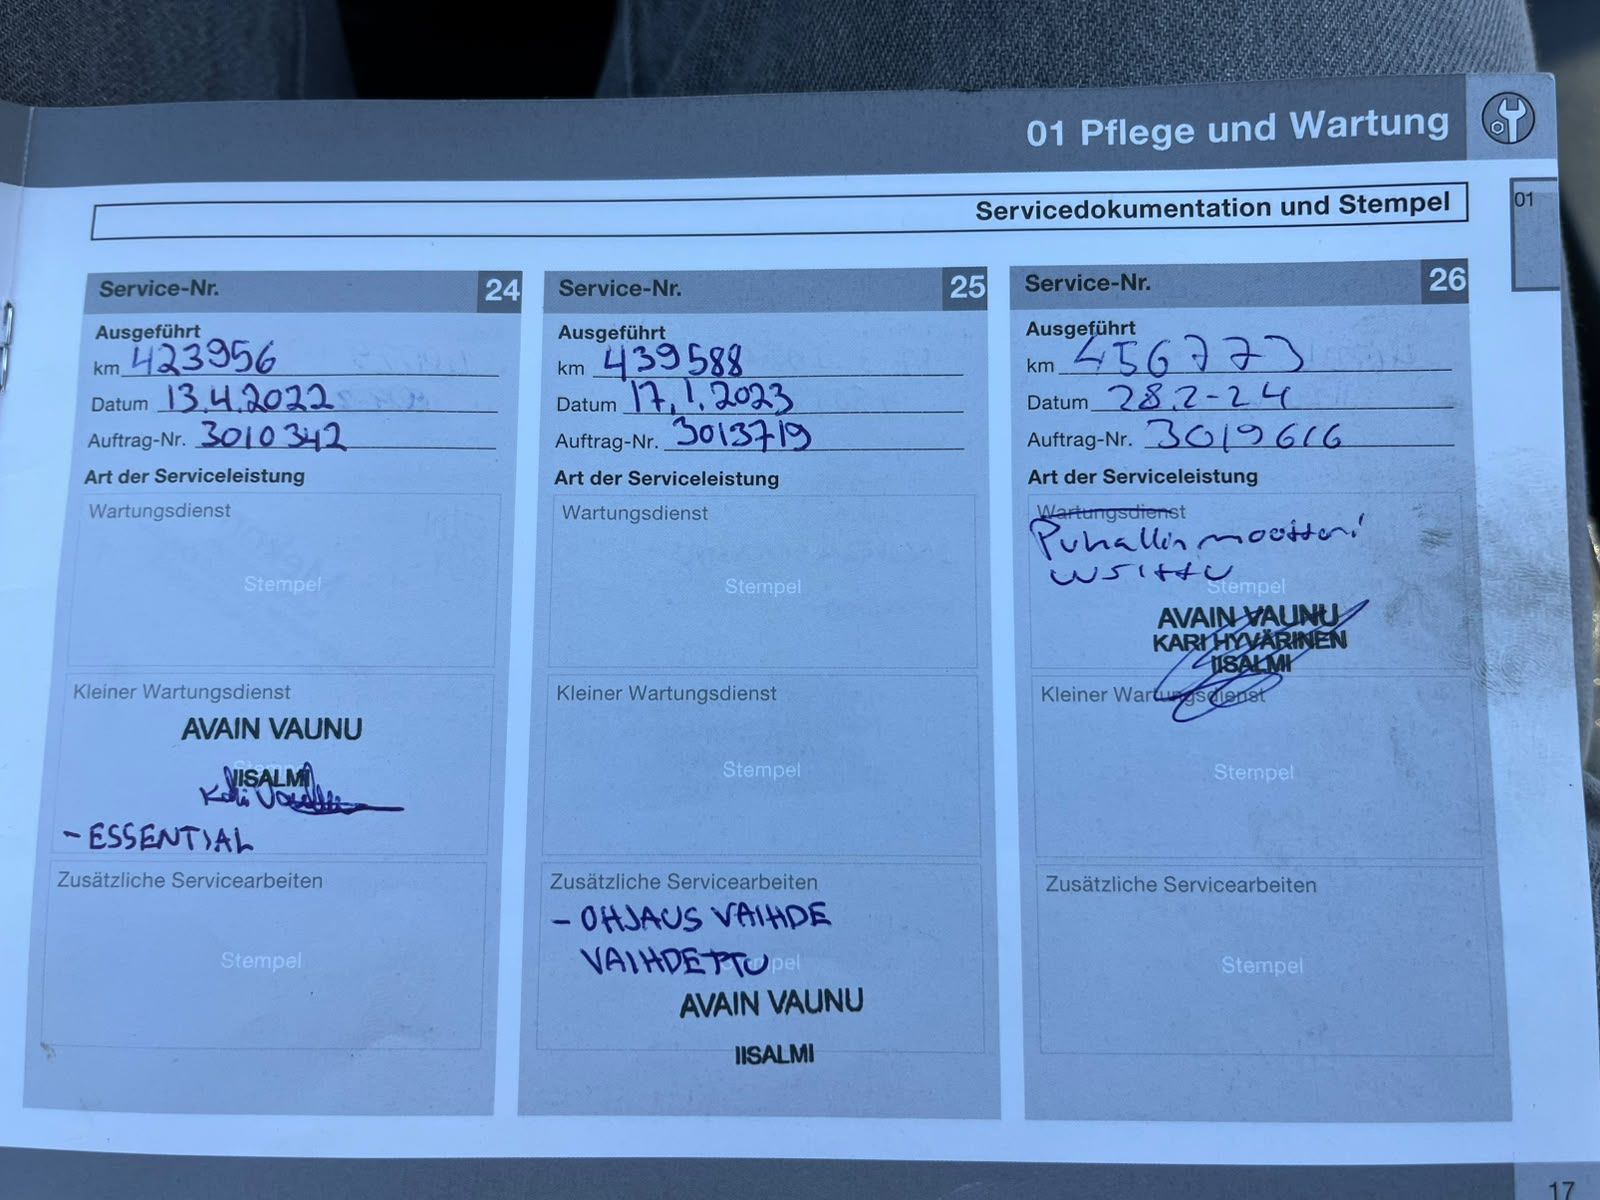 01 Pflege und Wartung
Servicedokumentation und Stempel
01
Service-Nr. 24
Ausgeführt
km 423956
Datum 13.4.2022
Auftrag-Nr. 3010342
Art der Serviceleistung
Wartungsdienst
Stempel
Kleiner Wartungsdienst
AVAIN VAUNU
IISALMI
- ESSENTIAL
Zusätzliche Servicearbeiten
Stempel
Service-Nr. 25
Ausgeführt
km 439588
Datum 17.1.2023
Auftrag-Nr. 3013719
Art der Serviceleistung
Wartungsdienst
Stempel
Kleiner Wartungsdienst
Stempel
Zusätzliche Servicearbeiten
- OHJAUS VAIHDE
VAIHDETTU
AVAIN VAUNU
IISALMI
Service-Nr. 26
Ausgeführt
km 456773
Datum 28.2-24
Auftrag-Nr. 3019616
Art der Serviceleistung
Wartungsdienst
Puhallin moottori
Stempel
AVAIN VAUNU
KARI HYVÄRINEN
IISALMI
Kleiner Wartungsdienst
Stempel
Zusätzliche Servicearbeiten
Stempel
17